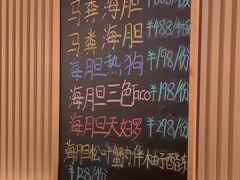 马粪海胆
马粪海胆 ¥488/份
海胆热狗 ¥198/份
海胆三色Taco ¥198/份
海胆天妇罗 ¥298/份
海胆松叶蟹肉伴柚子醋冻